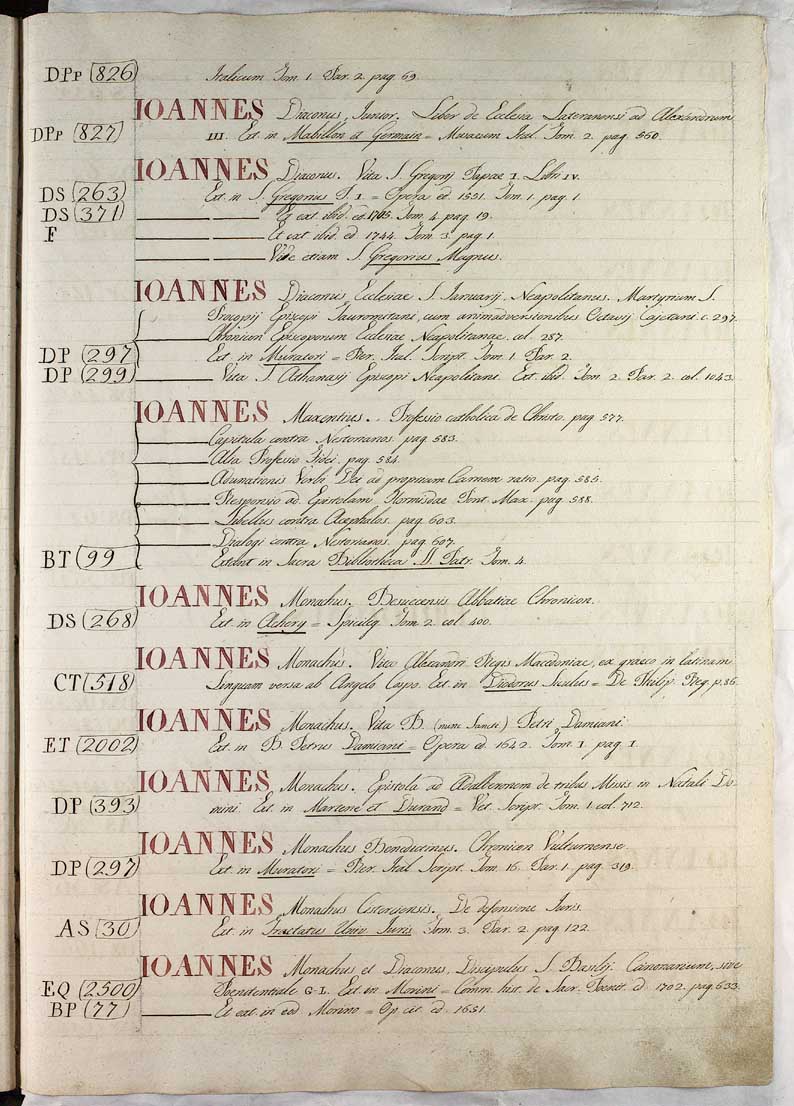 DPp (826) Italicum Tom. 1. Par. 2. pag. 69.
IOANNES Diaconus, Junior. Liber de Ecclesia Lateranensi ad Alexandrum
DPp (827) III. Ext. in Mabillon et Germain = Musaeum Ital. Tom. 2. pag. 560.
IOANNES Diaconus. Vita S. Gregorij Papae I. Libri IV.
DS (263) Ext. in S. Gregorius P. I = Opera ed. 1551. Tom. 1. pag. 1.
DS (371) Et ext. ibid. ed. 1705. Tom. 4. pag. 19.
F Et ext. ibid. ed. 1744. Tom. 3. pag. 1.
Vide etiam S. Gregorius Magnus.
IOANNES Diaconus Ecclesiae S. Januarij, Neapolitanus. Martyrium S.
Procopij Episcopi Tauromitani, cum animadversionibus Octavij Cajetani. c. 297.
Chronicon Episcoporum Ecclesiae Neapolitanae. col. 287.
DP (297) Ext. in Muratori = Rer. Ital. Script. Tom. 1. Par. 2.
DP (299) Vita S. Athanasij Episcopi Neapolitani. Ext. ibid. Tom. 2. Par. 2. col. 1043.
IOANNES Maxentius. Professio catholica de Christo. pag. 577.
Capitula contra Nestorianos. pag. 583.
Alia Professio Fidei. pag. 584.
Adunationis Verbi Dei ad propriam Carnem ratio. pag. 585.
Responsio ad Epistolam Hormisdae Pont. Max. pag. 588.
Libellus contra Acephalos. pag. 603.
Dialogi contra Nestorianos. pag. 607.
BT (99) Extant in Sacra Bibliotheca SS. Patr. Tom. 4.
IOANNES Monachus. Besuensis Abbatiae Chronicon.
DS (268) Ext. in Achery = Spicileg. Tom. 2. col. 400.
IOANNES Monachus. Vita Alexandri Regis Macedoniae, ex graeco in latinam
CT (518) Linguam versa ab Angelo Cospo. Ext. in Diodorus Siculus = De Philip. Reg. p. 86.
IOANNES Monachus. Vita B. (nunc Sancti) Petri Damiani.
ET (2002) Ext. in B. Petrus Damiani = Opera ed. 1642. Tom. 1. pag. 1.
IOANNES Monachus. Epistola ad Adalbernum de tribus Missis in Natali Do-
DP (393) mini. Ext. in Martene et Durand = Vet. Script. Tom. 1. col. 712.
IOANNES Monachus Benedictinus. Chronicon Vulturnense.
DP (297) Ext. in Muratori = Rer. Ital. Script. Tom. 1b. Par. 1. pag. 319.
IOANNES Monachus Cisterciensis. De defensione Juris.
AS (30) Ext. in Tractatus Univ. Juris. Tom. 3. Par. 2. pag. 122.
IOANNES Monachus et Diaconus, Discipulus S. Basilij. Canonarium, sive
EQ (2500) Poenitentiale G-L. Ext. in Morini = Comm. hist. de Sacr. Poenit. ed. 1702. pag. 633.
BP (77) Et ext. in eod. Morino = Op. cit. ed. 1651.